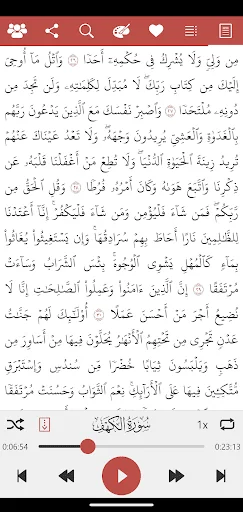 مِن وَلِيٍّ وَلَا يُشْرِكُ فِي حُكْمِهِۦٓ أَحَدًا ﴿٢٦﴾ وَٱتْلُ مَآ أُوحِيَ
إِلَيْكَ مِن كِتَابِ رَبِّكَ ۖ لَا مُبَدِّلَ لِكَلِمَٰتِهِۦ وَلَن تَجِدَ مِن
دُونِهِۦ مُلْتَحَدًا ﴿٢٧﴾ وَٱصْبِرْ نَفْسَكَ مَعَ ٱلَّذِينَ يَدْعُونَ رَبَّهُم
بِٱلْغَدَوٰةِ وَٱلْعَشِيِّ يُرِيدُونَ وَجْهَهُۥ ۖ وَلَا تَعْدُ عَيْنَاكَ عَنْهُمْ
تُرِيدُ زِينَةَ ٱلْحَيَوٰةِ ٱلدُّنْيَا ۖ وَلَا تُطِعْ مَنْ أَغْفَلْنَا قَلْبَهُۥ عَن
ذِكْرِنَا وَٱتَّبَعَ هَوَىٰهُ وَكَانَ أَمْرُهُۥ فُرُطًا ﴿٢٨﴾ وَقُلِ ٱلْحَقُّ مِن
رَّبِّكُمْ ۖ فَمَن شَآءَ فَلْيُؤْمِن وَمَن شَآءَ فَلْيَكْفُرْ ۚ إِنَّآ أَعْتَدْنَا
لِلظَّٰلِمِينَ نَارًا أَحَاطَ بِهِمْ سُرَادِقُهَا ۚ وَإِن يَسْتَغِيثُوا۟ يُغَاثُوا۟
بِمَآءٍ كَٱلْمُهْلِ يَشْوِي ٱلْوُجُوهَ ۚ بِئْسَ ٱلشَّرَابُ وَسَآءَتْ
مُرْتَفَقًا ﴿٢٩﴾ إِنَّ ٱلَّذِينَ ءَامَنُوا۟ وَعَمِلُوا۟ ٱلصَّٰلِحَٰتِ إِنَّا لَا
نُضِيعُ أَجْرَ مَنْ أَحْسَنَ عَمَلًا ﴿٣٠﴾ أُو۟لَٰٓئِكَ لَهُمْ جَنَّٰتُ
عَدْنٍ تَجْرِي مِن تَحْتِهِمُ ٱلْأَنْهَٰرُ يُحَلَّوْنَ فِيهَا مِنْ أَسَاوِرَ مِن
ذَهَبٍ وَيَلْبَسُونَ ثِيَابًا خُضْرًا مِّن سُندُسٍ وَإِسْتَبْرَقٍ
مُّتَّكِـِٔينَ فِيهَا عَلَى ٱلْأَرَآئِكِ ۚ نِعْمَ ٱلثَّوَابُ وَحَسُنَتْ مُرْتَفَقًا
سُورَةُ الكَهْفِ
1x
0:06:54
0:23:13